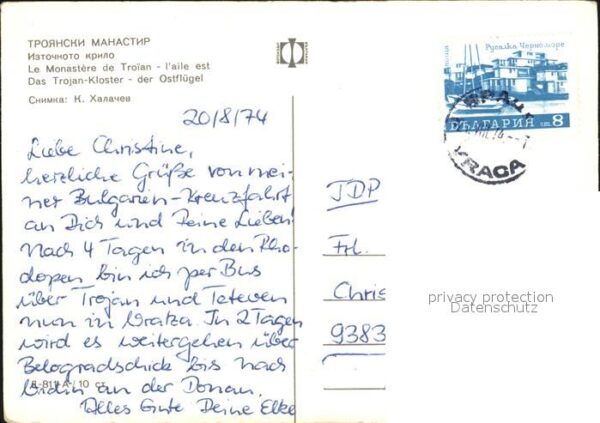 ТРОЯНСКИ МАНАСТИР
Източното крило
Le Monastère de Troïan - l'aile est
Das Trojan-Kloster - der Ostflügel
Снимка: К. Халачев
20/8/74
Liebe Christine,
herzliche Grüße von mei-
ner Bulgarien-Kreuzfahrt
an Dich und Deine Lieben!
Nach 4 Tagen in den Rho-
dopen bin ich per Bus
über Trojan und Teteven
nun in Vratza. In 2 Tagen
wird es weitergehen über
Belogradschick bis nach
Vidin an der Donau.
Alles Gute Deine Elke
А/10 ст.
JDP
Frl.
Chris
9383
Русалка Черноморе
БЪЛГАРИЯ ст. 8
VRACA
privacy protection
Datenschutz